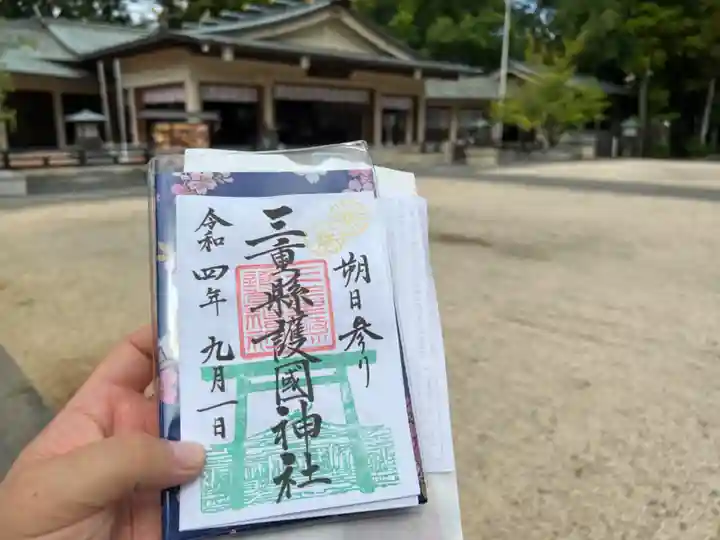 朔日参り
三重縣護國神社
令和四年九月一日